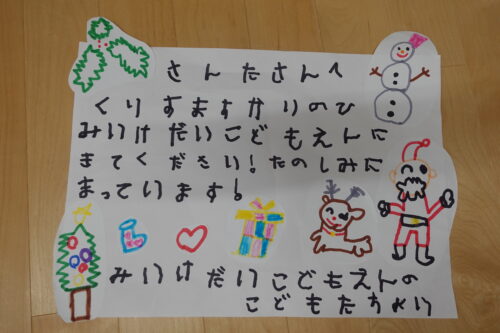 さんたさんへ
くりすますかいのひ
みいけだいこどもえんに
きてください!たのしみに
まっています!
みいけだいこどもえんの
こどもたちより